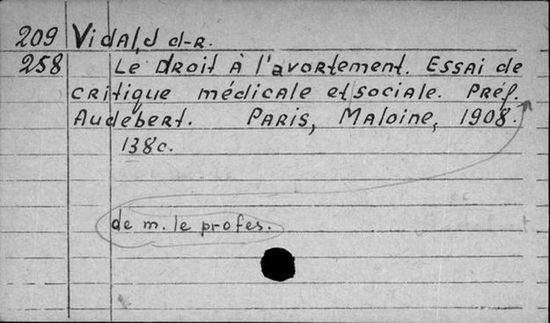 209 Vidal, J d-r.
258 Le Droit à l'avortement. Essai de
critique médicale et sociale. Préf.
Audebert. Paris, Maloine, 1908.
138c.
de m. le profes.